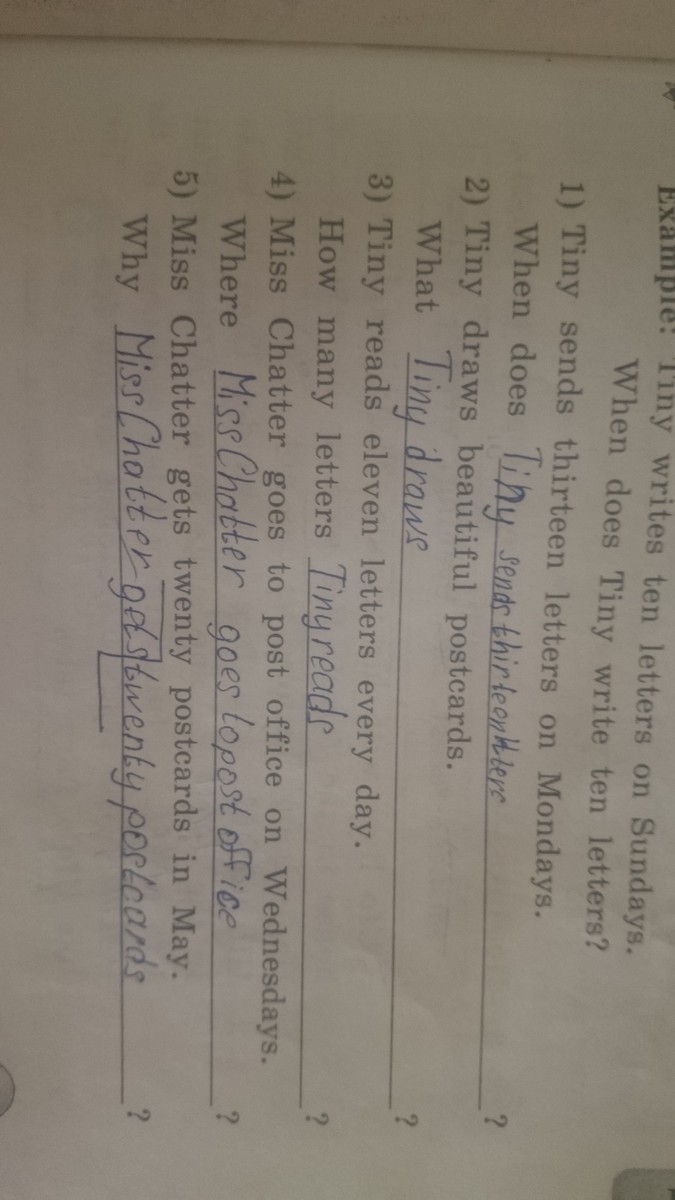 Example: Tiny writes ten letters on Sundays.
When does Tiny write ten letters?
1) Tiny sends thirteen letters on Mondays.
When does Tiny sends ?
2) Tiny draws beautiful postcards.
What Tiny draws ?
3) Tiny reads eleven letters every day.
How many letters Tiny reads ?
4) Miss Chatter goes to post office on Wednesdays.
Where Miss Chatter goes to post office ?
5) Miss Chatter gets twenty postcards in May.
Why Miss Chatter gets twenty postcards ?